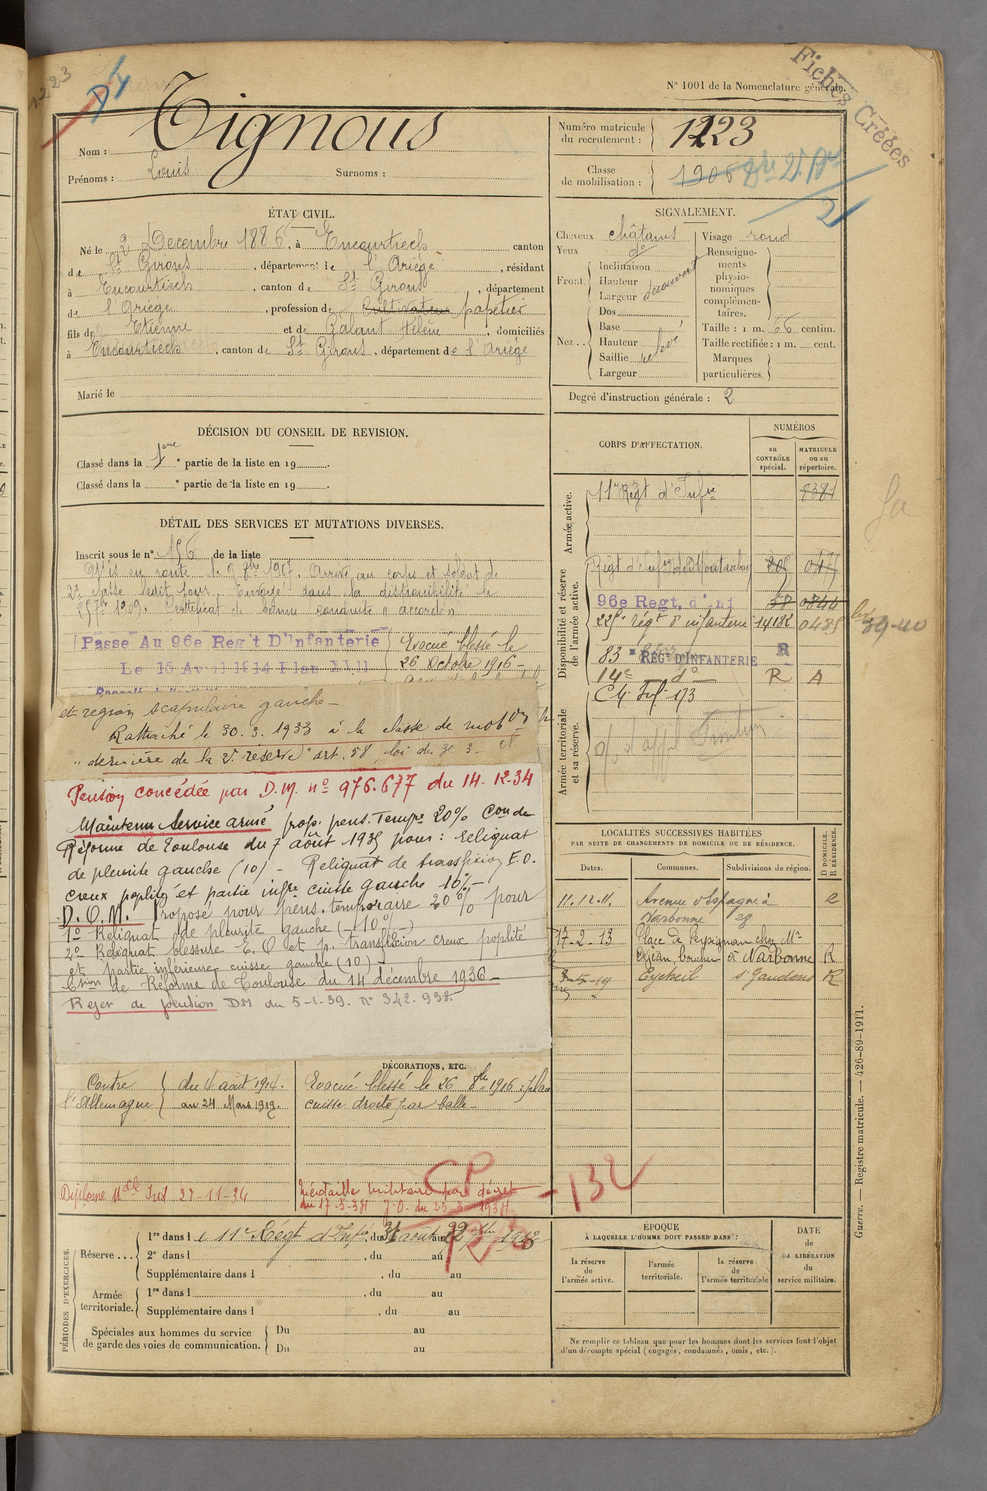 Fiches Créées
N° 1001 de la Nomenclature générale.
1223
Tignous
Nom :
Prénoms : Louis Surnoms :
Numéro matricule du recrutement : 1223
Classe de mobilisation : 1906
ÉTAT CIVIL.
Né le 2 Décembre 1886, à Encourtiech canton
de St Girons, département de l'Ariège, résidant
à Encourtiech, canton de St Girons, département
de l'Ariège, profession de cultivateur papetier
fils de Etienne et de Galant Hélène, domiciliés
à Encourtiech, canton de St Girons, département de l'Ariège
Marié le
SIGNALEMENT.
Cheveux châtains Visage rond
Yeux do
Front Inclinaison Hauteur Largeur découvert
Nez Dos Base Hauteur Saillie Largeur relevé
Renseignements physionomiques complémentaires.
Taille : 1 m. 66 centim.
Taille rectifiée : 1 m. cent.
Marques particulières.
Degré d'instruction générale : 2
DÉCISION DU CONSEIL DE REVISION.
Classé dans la 1ere partie de la liste en 19
Classé dans la e partie de la liste en 19
DÉTAIL DES SERVICES ET MUTATIONS DIVERSES.
Inscrit sous le n° 156 de la liste
Mis en route le 9 8bre 1907. Arrivé au corps et soldat de
2e classe ledit jour. Envoyé dans la disponibilité le
25 7bre 1909. Certificat de bonne conduite "accordé"
Passe Au 96e Reg't D'Infanterie
Le 15 Avril 1914 Plan XVII
Evacué blessé le
26 Octobre 1916
et région scapulaire gauche
Rattaché le 30.3.1933 à la classe de mobon
"dernière de la 2e réserve" art. 58, loi du 31.3
Pension concédée par D.M. n° 976.677 du 14-12-34
Maintenu Service armé prop. pens. Tempre 20% Con de
Réforme de Toulouse du 7 août 1935 pour : reliquat
de pleurite gauche (10) - Reliquat de transfixion E.O.
creux poplité et partie infre cuisse gauche 10% -
D.O.M. Proposé pour pens. temporaire 20% pour
1° Reliquat de pleurite gauche (-10%)
2° Reliquat blessure E.O et p. transfixion creux poplité
et partie inférieure cuisse gauche (10) -
Cssion de Réforme de Toulouse du 14 décembre 1936 -
Rejet de pension DM du 5-1-39. N° 342.938.
CORPS D'AFFECTATION.
NUMÉROS
au CONTRÔLE spécial.
MATRICULE ou au répertoire.
Armée active.
11e Régt d'Infie
8384
Disponibilité et réserve de l'armée active.
Régt d'Infie de Montauban
96e Regt. d'Inf 38 0844
225e régt d'infanterie 14182 0485
83e REGt D'INFANTERIE R
14e do R A
C4 Inf 173
Armée territoriale et sa réserve.
39-40
LOCALITÉS SUCCESSIVES HABITÉES
PAR SUITE DE CHANGEMENTS DE DOMICILE OU DE RÉSIDENCE.
Dates. Communes. Subdivisions de région. D DOMICILE. R RÉSIDENCE.
11.12.11. Avenue d'Espagne à
Narbonne
17-2-13 Place de Perpignan chez Mr
boucher à Narbonne R
Eycheil St Gaudens R
DÉCORATIONS, ETC.
Contre l'Allemagne
du 4 août 1914.
au 24 Mars 1919.
Evacué blessé le 26 8bre 1916 : plaie
cuisse droite par balle
Diplôme Mlle Ind 27-11-36
Médaille militaire par décret
du 17-3-38 J.O. du 23-3-1938
CP
-132
PÉRIODES D'EXERCICES.
Réserve 1re dans le 11e Régt d'Infie, du 31 août au 22 7bre 1913
2e dans l , du au
Supplémentaire dans l , du au
Armée territoriale. 1re dans l , du au
Supplémentaire dans l , du au
Spéciales aux hommes du service de garde des voies de communication. Du au
Du au
ÉPOQUE
À LAQUELLE L'HOMME DOIT PASSER DANS :
la réserve de l'armée active.
l'armée territoriale.
la réserve de l'armée territoriale
DATE de LA LIBÉRATION du service militaire.
Ne remplir ce tableau que pour les hommes dont les services font l'objet
d'un décompte spécial (engagés, condamnés, omis, etc.).
Guerre. — Registre matricule. — 426-89-1911.